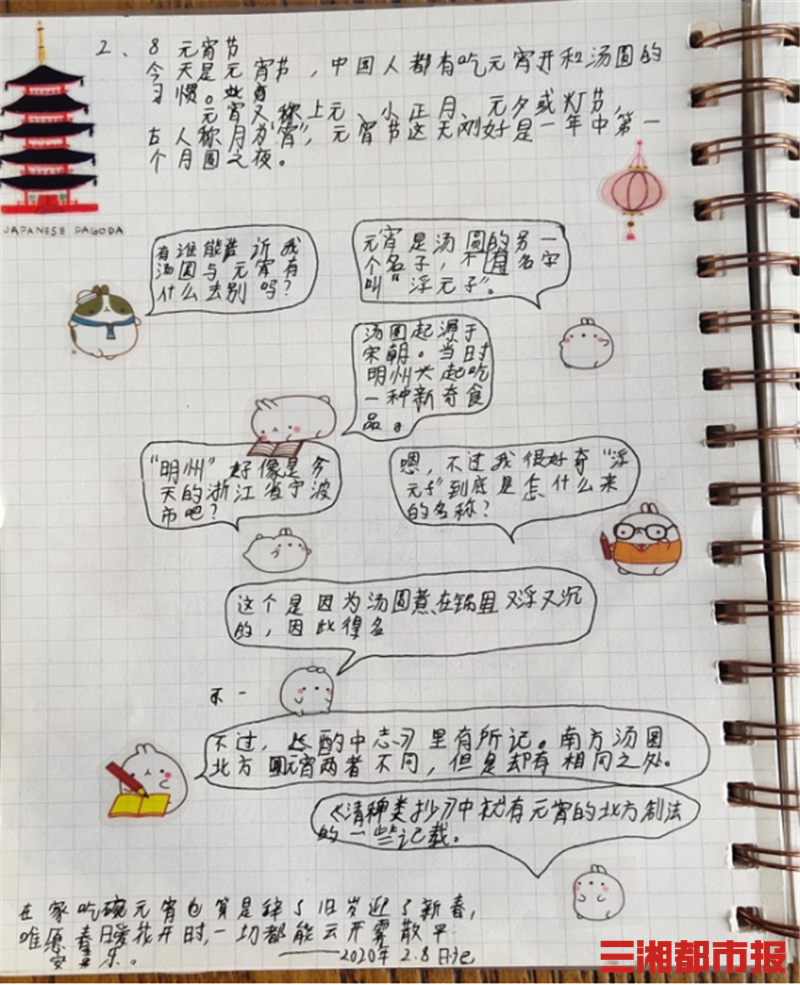 2、8 元宵节
今天是元宵节，中国人都有吃元宵并和汤圆的
习惯。
元宵又称上元、小正月、元夕或灯节，
古人称月为"宵"，元宵节这天刚好是一年中第一
个月圆之夜。
JAPANESE PAGODA
有谁能告诉我
汤圆与元宵有
什么去别吗？
元宵是汤圆的另一
个名子，不有名字
叫"浮元子"。
汤圆起源于
宋朝。当时
明州兴起吃
一种新奇食
品。
"明州"好像是今
天的浙江省宁波
市吧？
嗯，不过我很好奇"浮
元子"到底是怎什么来
的名称？
这个是因为汤圆煮在锅里又浮又沉
的，因此得名
不一
不过，《酌中志》里有所记。南方汤圆
北方元宵两者不同，但是却有相同之处。
《清种类抄》中就有元宵的北方制法
的一些记载。
在家吃碗元宵也算是辞了旧岁迎了新春，
唯愿春暖花开时，一切都能云开雾散平
安喜乐。
——2020年2.8日记
三湘都市报